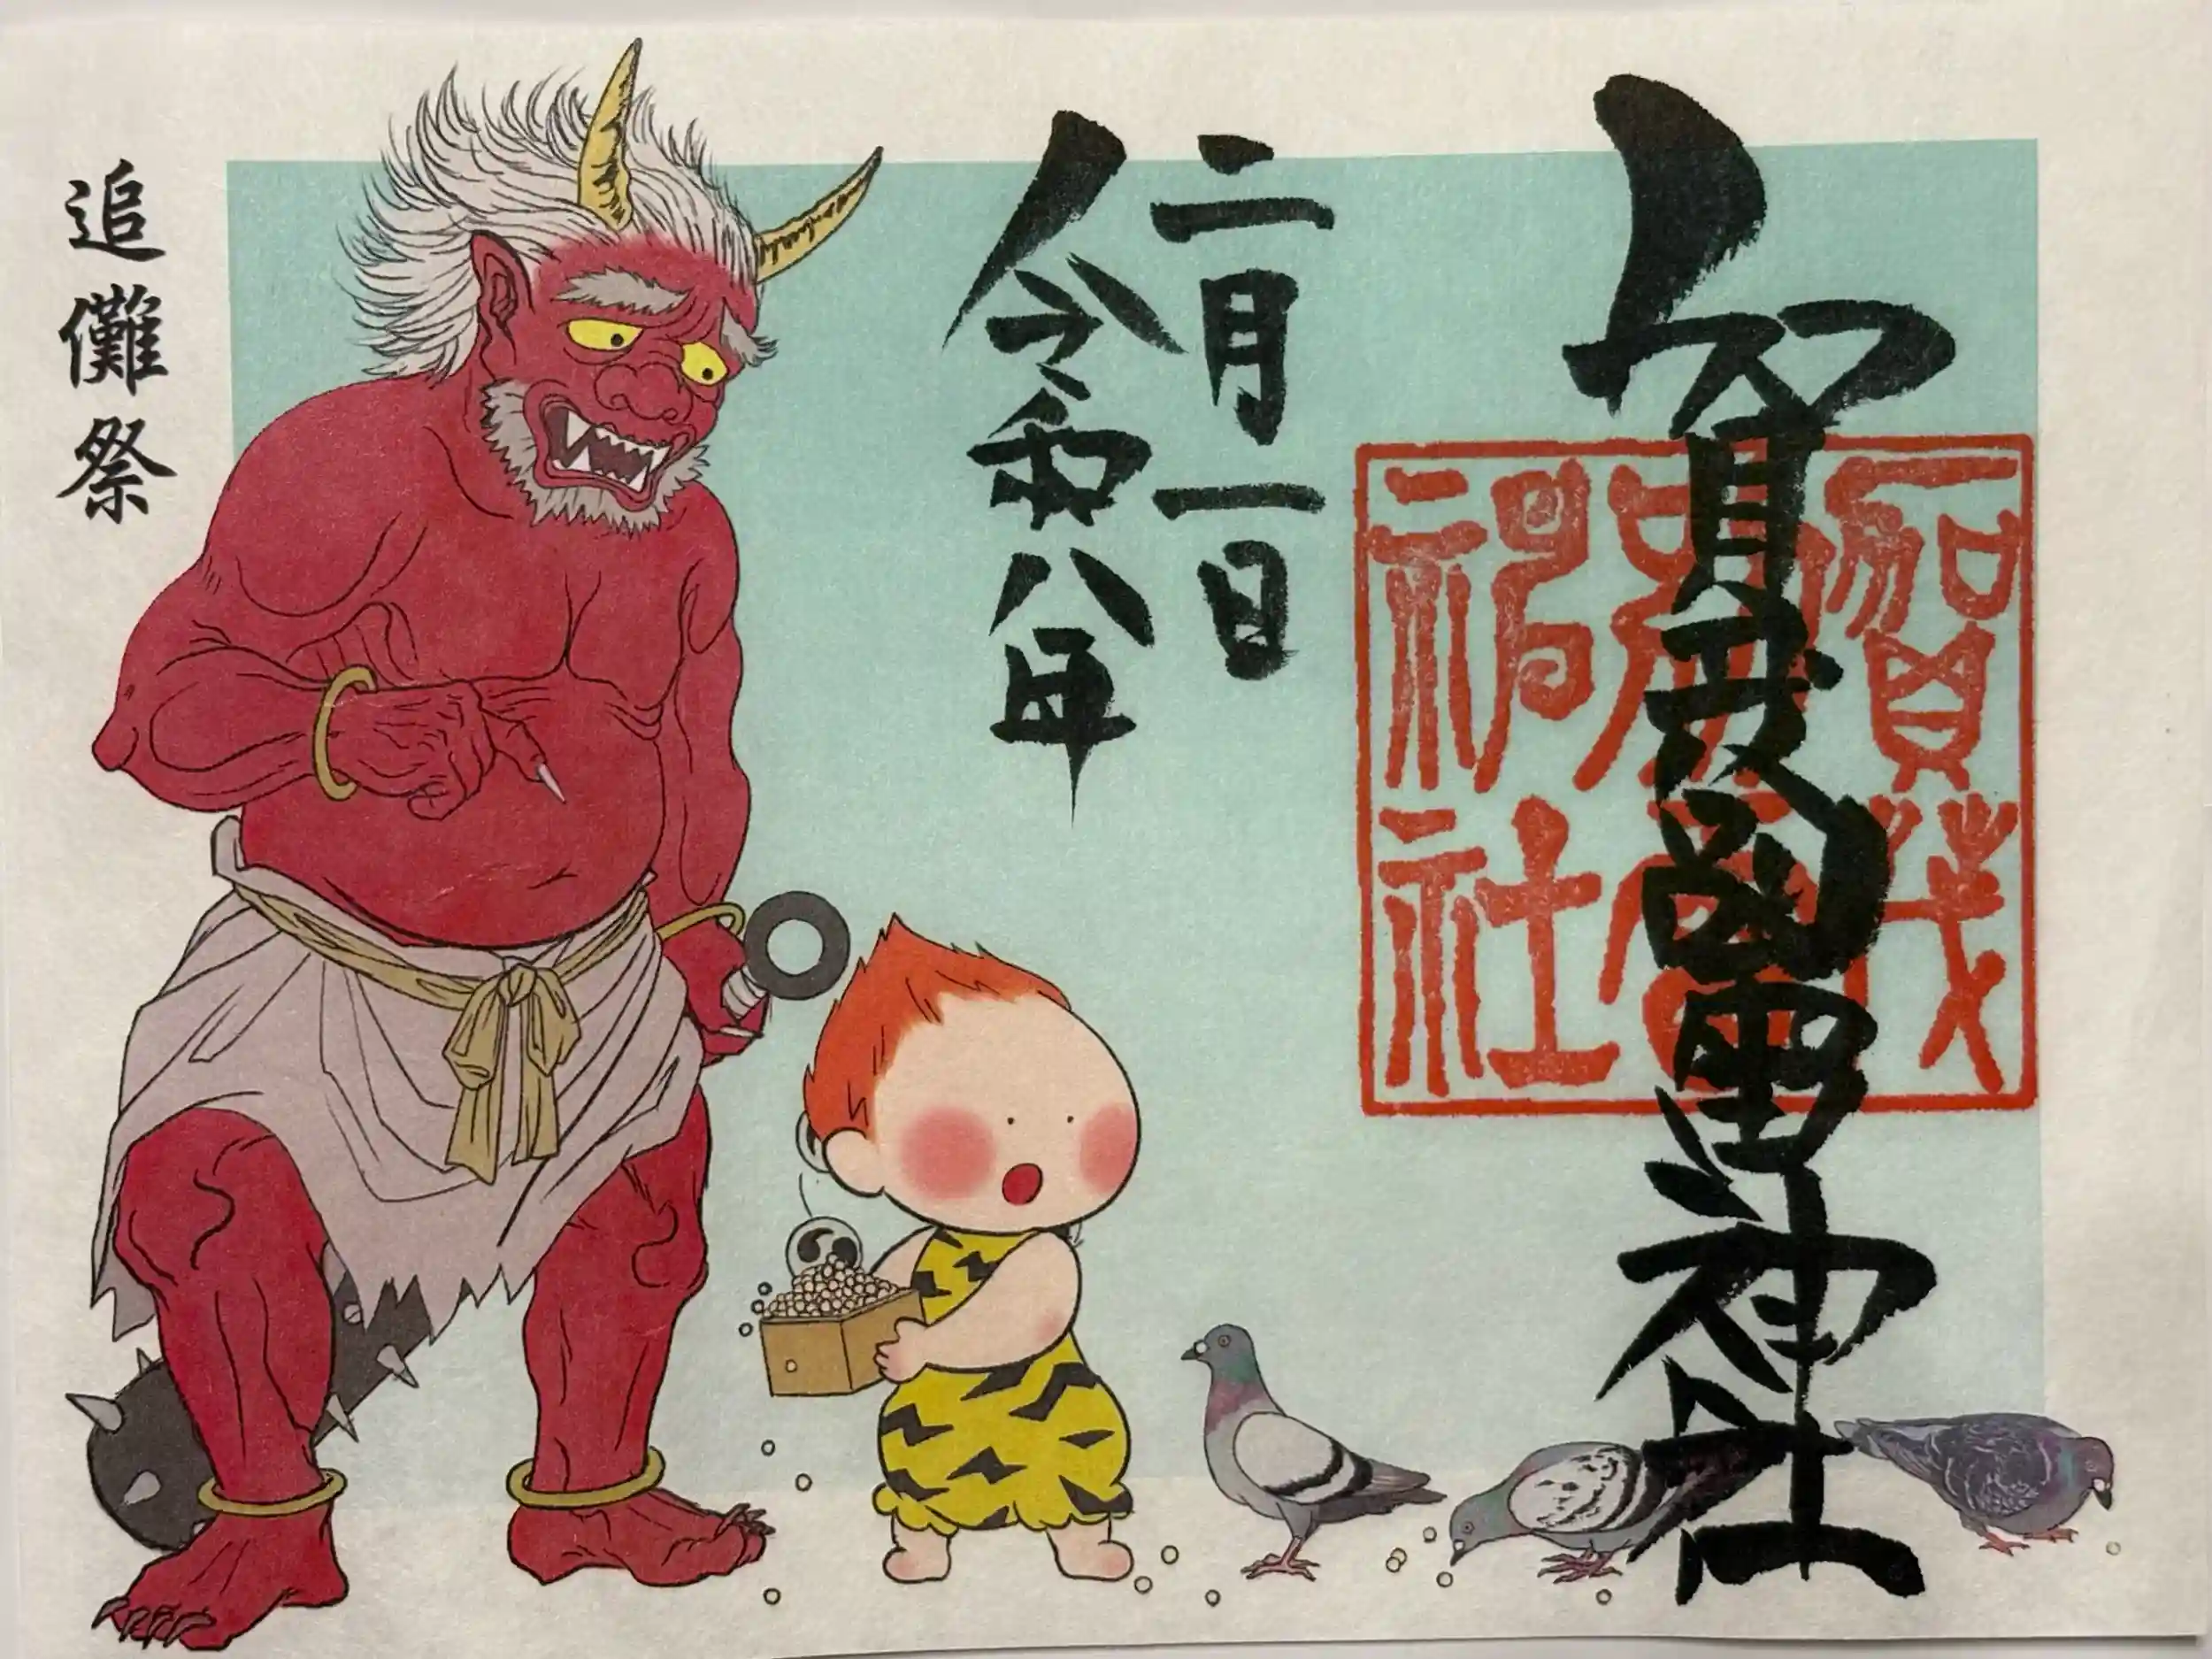 賀茂別雷神社
賀茂別雷神社
二月一日
令和八年
追儺祭